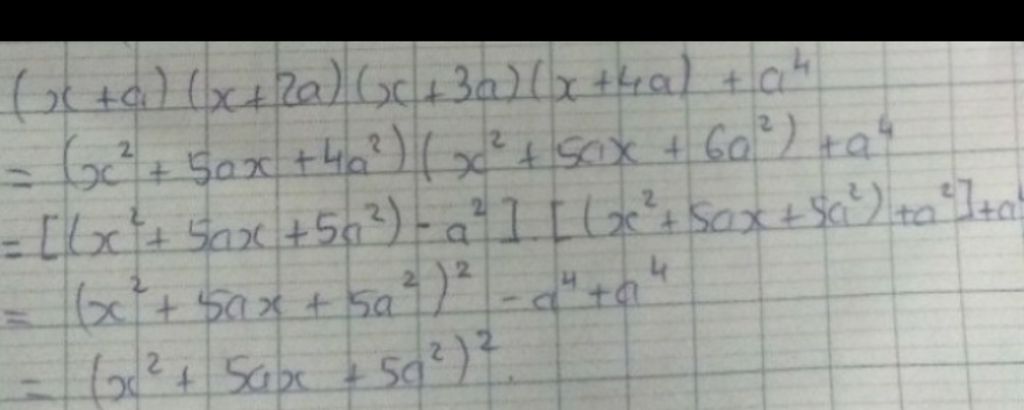 (x+a)(x+2a)(x+3a)(x+4a)+a⁴
= (x²+5ax+4a²)(x²+5ax+6a²)+a⁴
= [(x²+5ax+5a²)-a²] [(x²+5ax+5a²)+a²]+a⁴
= (x²+5ax+5a²)²-a⁴+a⁴
= (x²+5ax+5a²)².